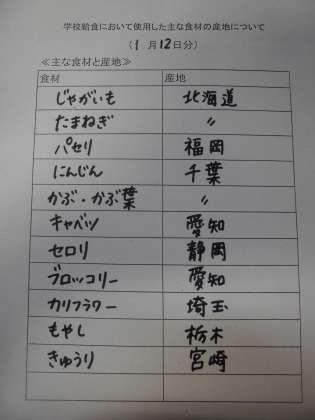 学校給食において使用した主な食材の産地について
(1月12日分)
≪主な食材と産地≫
食材 産地
じゃがいも 北海道
たまねぎ 〃
パセリ 福岡
にんじん 千葉
かぶ・かぶ葉 〃
キャベツ 愛知
セロリ 静岡
ブロッコリー 愛知
カリフラワー 埼玉
もやし 栃木
きゅうり 宮崎